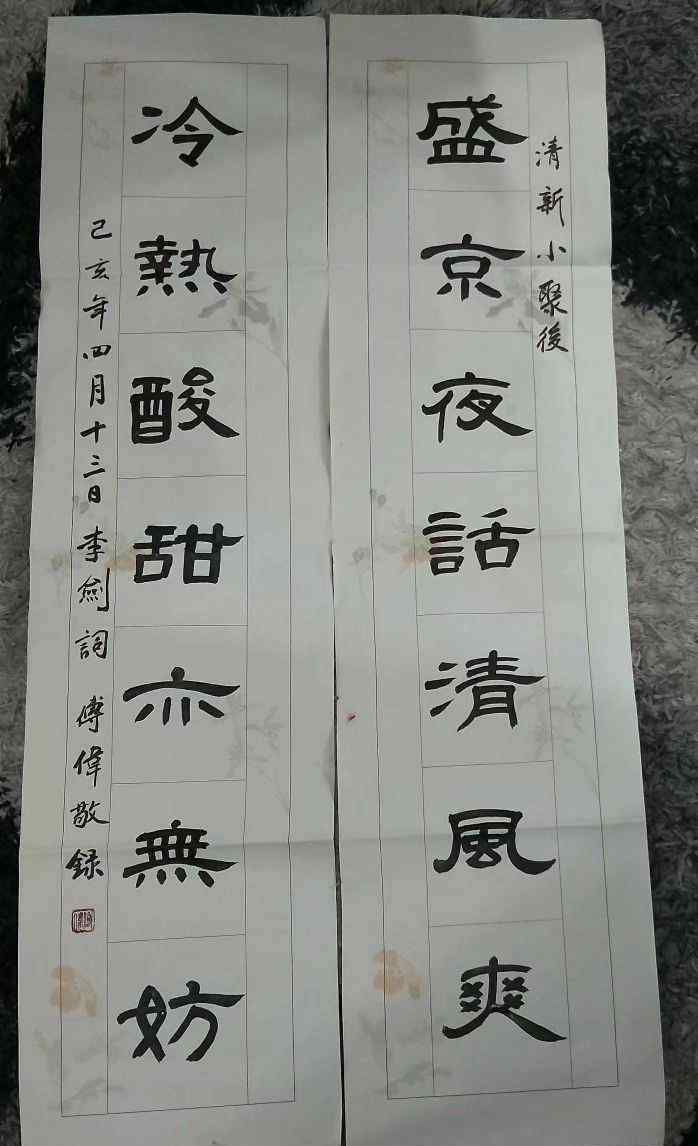 清新小聚後
盛京夜話清風爽
冷熱酸甜亦無妨
己亥年四月十三日李劍詞傅偉敬録